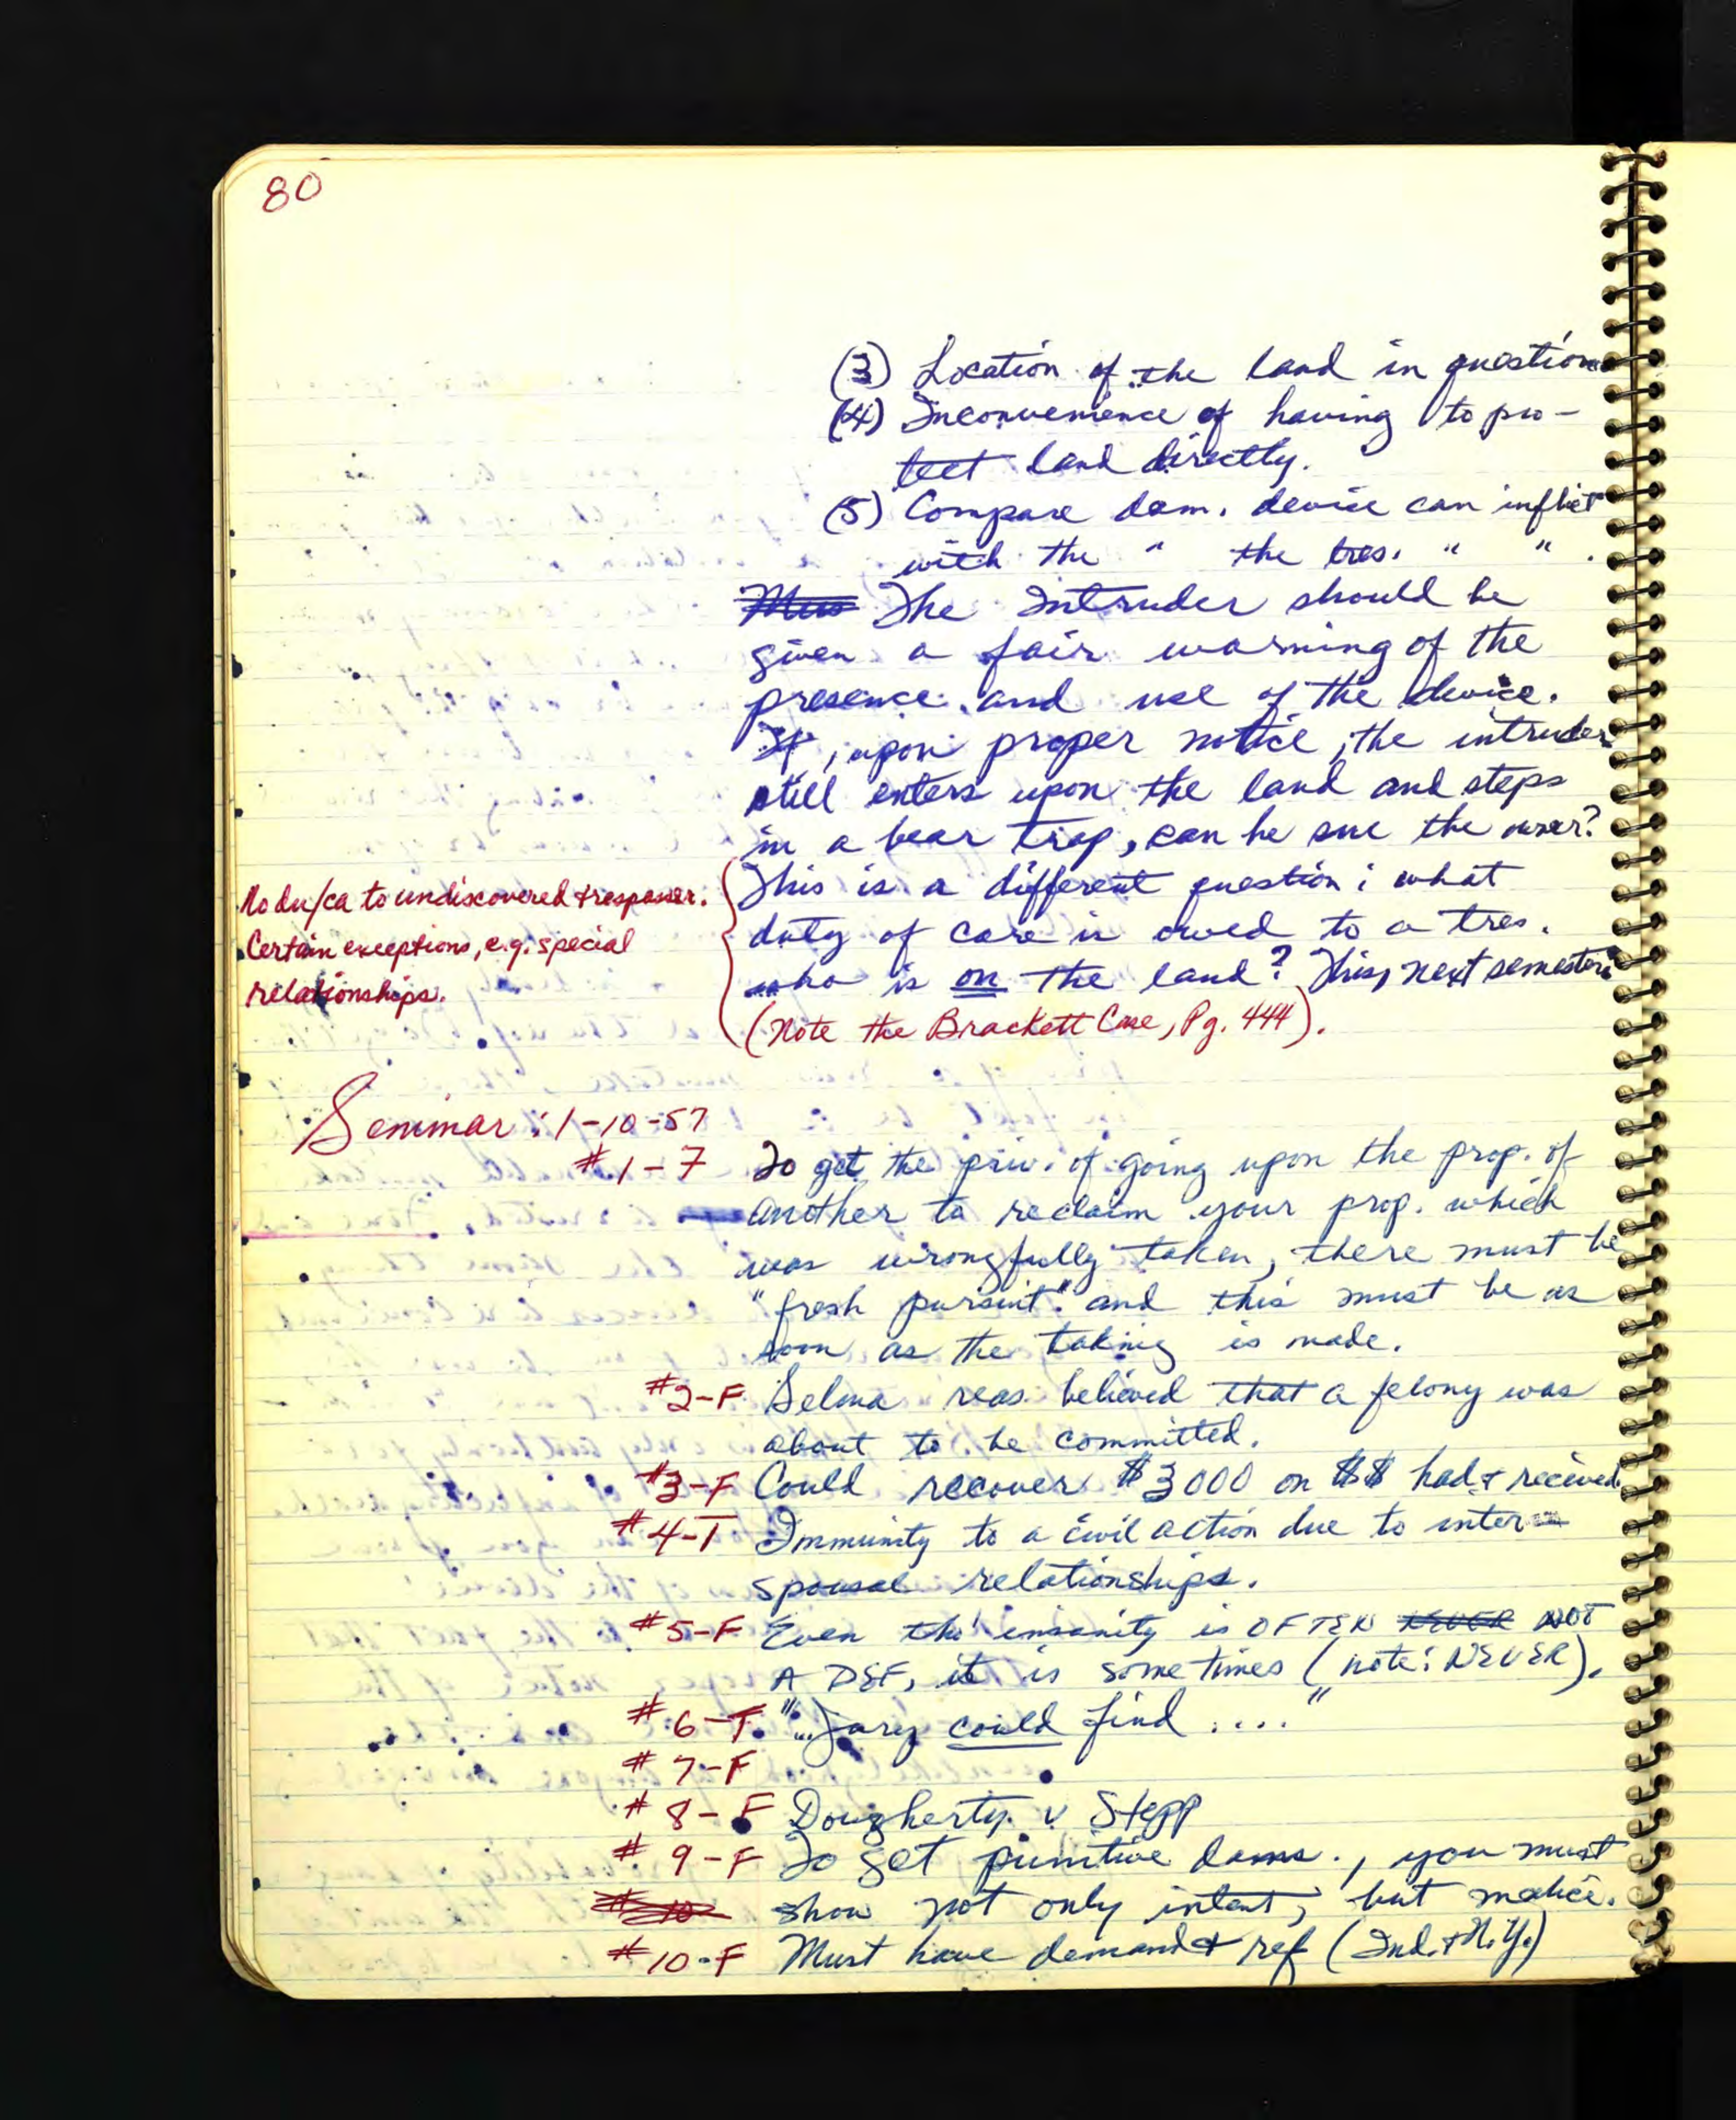 80
(3) Location of the land in question
(4) Inconvenience of having to pro-
tect land directly.
(5) Compare dam. device can inflict
with the " the tres. " " .
The Intruder should be
given a fair warning of the
presence and use of the device.
If, upon proper notice, the intruder
still enters upon the land and steps
in a bear trap, can he sue the owner?
This is a different question: what
duty of care is owed to a tres.
who is on the land? This, next semester.
(Note the Brackett Case, Pg. 444).
No du/ca to undiscovered trespasser.
Certain exceptions, e.g. special
relationships.
Seminar: 1-10-57
#1-F To get the priv. of going upon the prop. of
another to reclaim your prop. which
was wrongfully taken, there must be
"fresh pursuit" and this must be as
soon as the taking is made.
#2-F Selma reas. believed that a felony was
about to be committed.
#3-F Could recover $3000 on $$ had & received
#4-T Immunity to a civil action due to inter-
spousal relationships.
#5-F Even tho' insanity is OFTEN NEVER NOT
A DEF, it is sometimes (note: NEVER).
#6-T "...Jury could find ...."
#7-F
#8-F Dougherty v Stepp
#9-F To get punitive dams., you must
#10 show not only intent, but malice.
#10-F Must have demand & ref (Ind. & N.Y.)